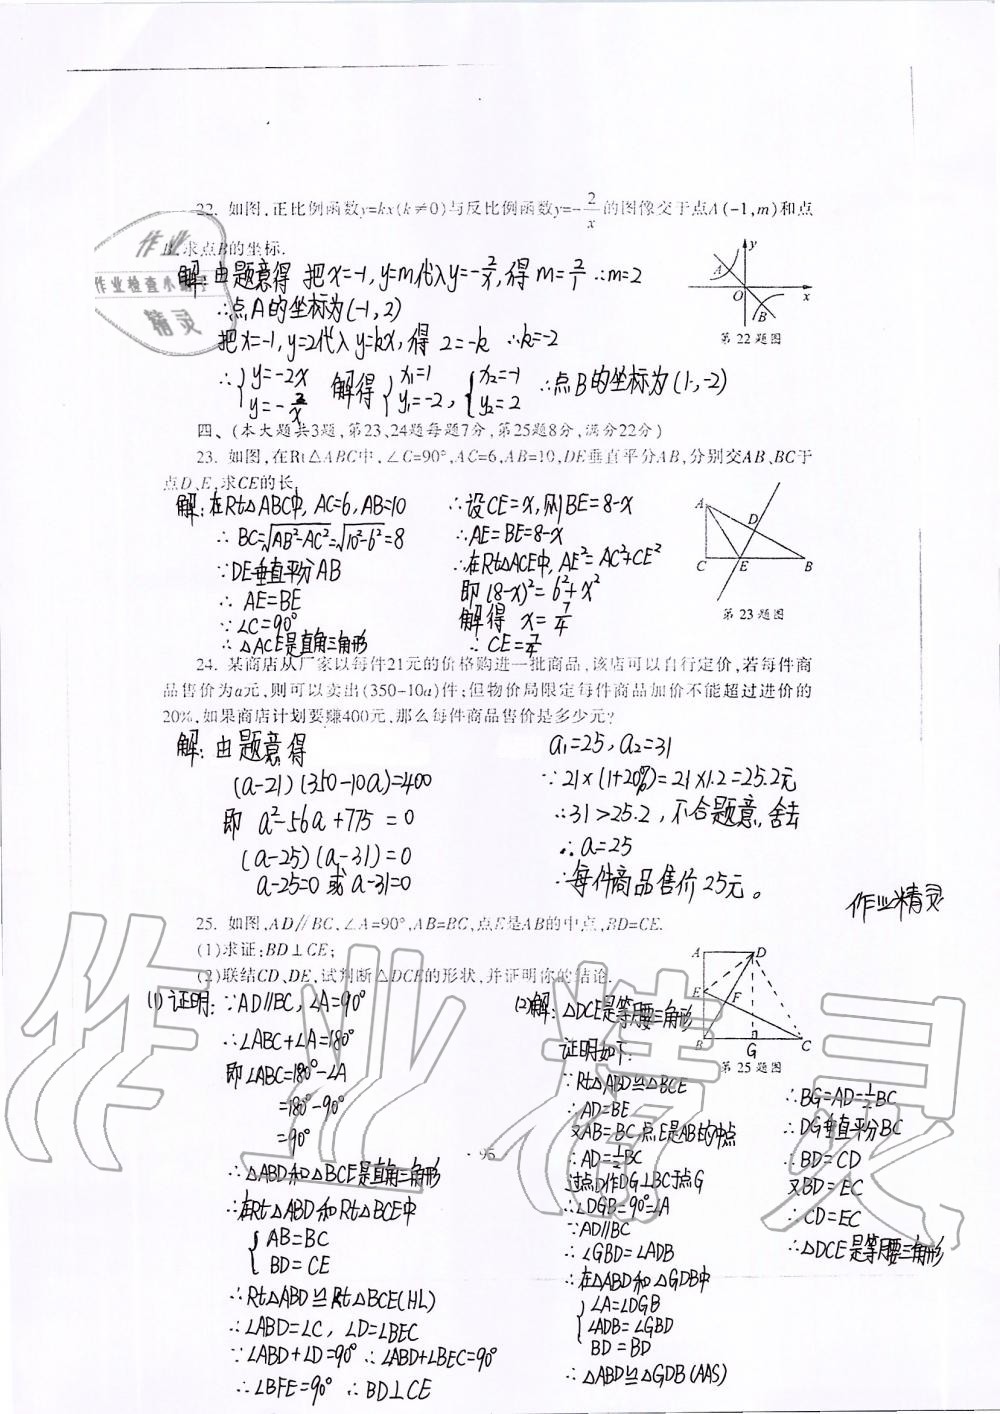 22. 如图,正比例函数y=kx(k≠0)与反比例函数y=-2/x的图像交于点A(-1,m)和点
B,求点B的坐标.
解:由题意得 把x=-1,y=m代入y=-2/x,得 m=2/1 ∴m=2
∴点A的坐标为(-1,2)
把x=-1,y=2代入y=kx,得 2=-k ∴k=-2
∴{y=-2x y=-2/x 解得{x₁=1 y₁=-2, {x₂=-1 y₂=2 ∴点B的坐标为(1,-2)
A
y
O
B
x
第22题图
四、(本大题共3题,第23、24题每题7分,第25题8分,满分22分)
23. 如图,在Rt△ABC中,∠C=90°,AC=6,AB=10,DE垂直平分AB,分别交AB、BC于
点D、E,求CE的长.
解:在Rt△ABC中,AC=6,AB=10
∴ BC=√AB²-AC²=√10²-6²=8
∵DE垂直平分AB
∴ AE=BE
∵ ∠C=90°
∴ △ACE是直角三角形
∴设CE=x,则BE=8-x
∴AE=BE=8-x
∴在Rt△ACE中,AE²=AC²+CE²
即 (8-x)²=6²+x²
解得 x=7/4
∴ CE=7/4
A
D
C
E
B
第23题图
24. 某商店从厂家以每件21元的价格购进一批商品,该店可以自行定价,若每件商
品售价为a元,则可以卖出(350-10a)件;但物价局限定每件商品加价不能超过进价的
20%,如果商店计划要赚400元,那么每件商品售价是多少元?
解:由题意得
(a-21)(350-10a)=400
即 a²-56a+775=0
(a-25)(a-31)=0
a-25=0 或 a-31=0
a₁=25,a₂=31
∵21×(1+20%)=21×1.2=25.2元
∴31>25.2,不合题意,舍去
∴a=25
∴每件商品售价25元。
作业精灵
25. 如图,AD∥BC,∠A=90°,AB=BC,点E是AB的中点,BD=CE.
(1)求证:BD⊥CE;
(2)联结CD、DE,试判断△DCE的形状,并证明你的结论.
A
D
E
F
B
G
C
第25题图
(1)证明:∵AD∥BC,∠A=90°
∴∠ABC+∠A=180°
即∠ABC=180°-∠A
=180°-90°
=90°
∴△ABD和△BCE是直角三角形
∴在Rt△ABD和Rt△BCE中
{AB=BC
BD=CE
∴Rt△ABD≌Rt△BCE(HL)
∴∠ABD=∠C,∠D=∠BEC
∵∠ABD+∠D=90° ∴∠ABD+∠BEC=90°
∴∠BFE=90° ∴BD⊥CE
(2)解:△DCE是等腰三角形
证明如下:
∵Rt△ABD≌△BCE
∴AD=BE
又AB=BC 点E是AB的中点
∴AD=1/2BC
过点D作DG⊥BC于点G
∴∠DGB=90°=∠A
∵AD∥BC
∴∠GBD=∠ADB
∴在△ABD和△GDB中
{∠A=∠DGB
∠ADB=∠GBD
BD=BD
∴△ABD≌△GDB(AAS)
∴BG=AD=1/2BC
∴DG垂直平分BC
∴BD=CD
又BD=EC
∴CD=EC
∴△DCE是等腰三角形
·96
作业
作业检查小助手
精灵
作业精灵